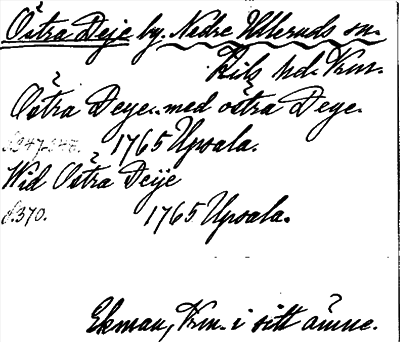 Östra Deje by, Nedre Ulleruds sn.
Kils hd. Vrm.
Östra Deye. med östra Deye.
s. 347-348. 1765 Upsala.
Wid Östra Deije
s. 370. 1765 Upsala.
Ekman, Vrm. i sitt ämne.